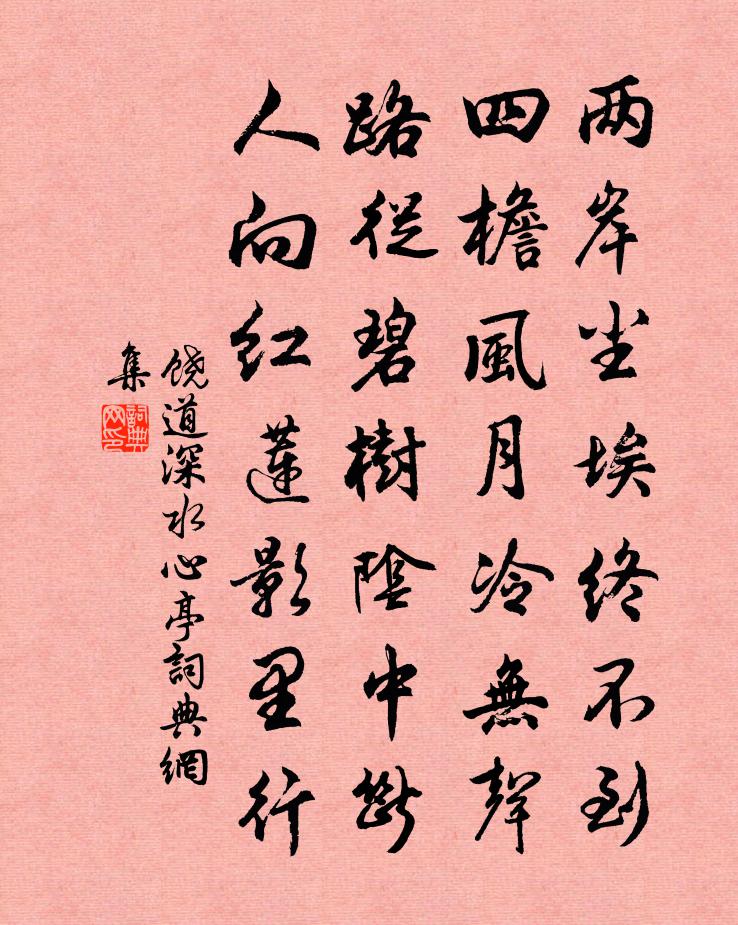 两岸尘埃终不到
四檐風月冷無聲
路從碧樹陰中断
人向红蓮影里行
饶道深水心亭詞典網
集
詞典
网印